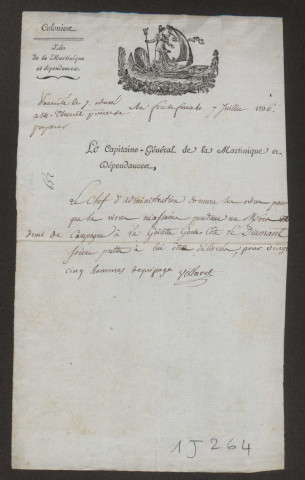 Colonies
Isle
de la Martinique
et dépendances.
au fort de france 7 Juillet 1806
Le Capitaine-Général de la Martinique et
Dépendances,
Le Chef d'administration donnera les ordres pour
que les vivres nécessaires pendant un Mois
de Campagne à la Goëlette Garde Côte le Diamant
soient à lui être délivrés, pour vingt
cinq hommes d'équipage Villaret
1J264